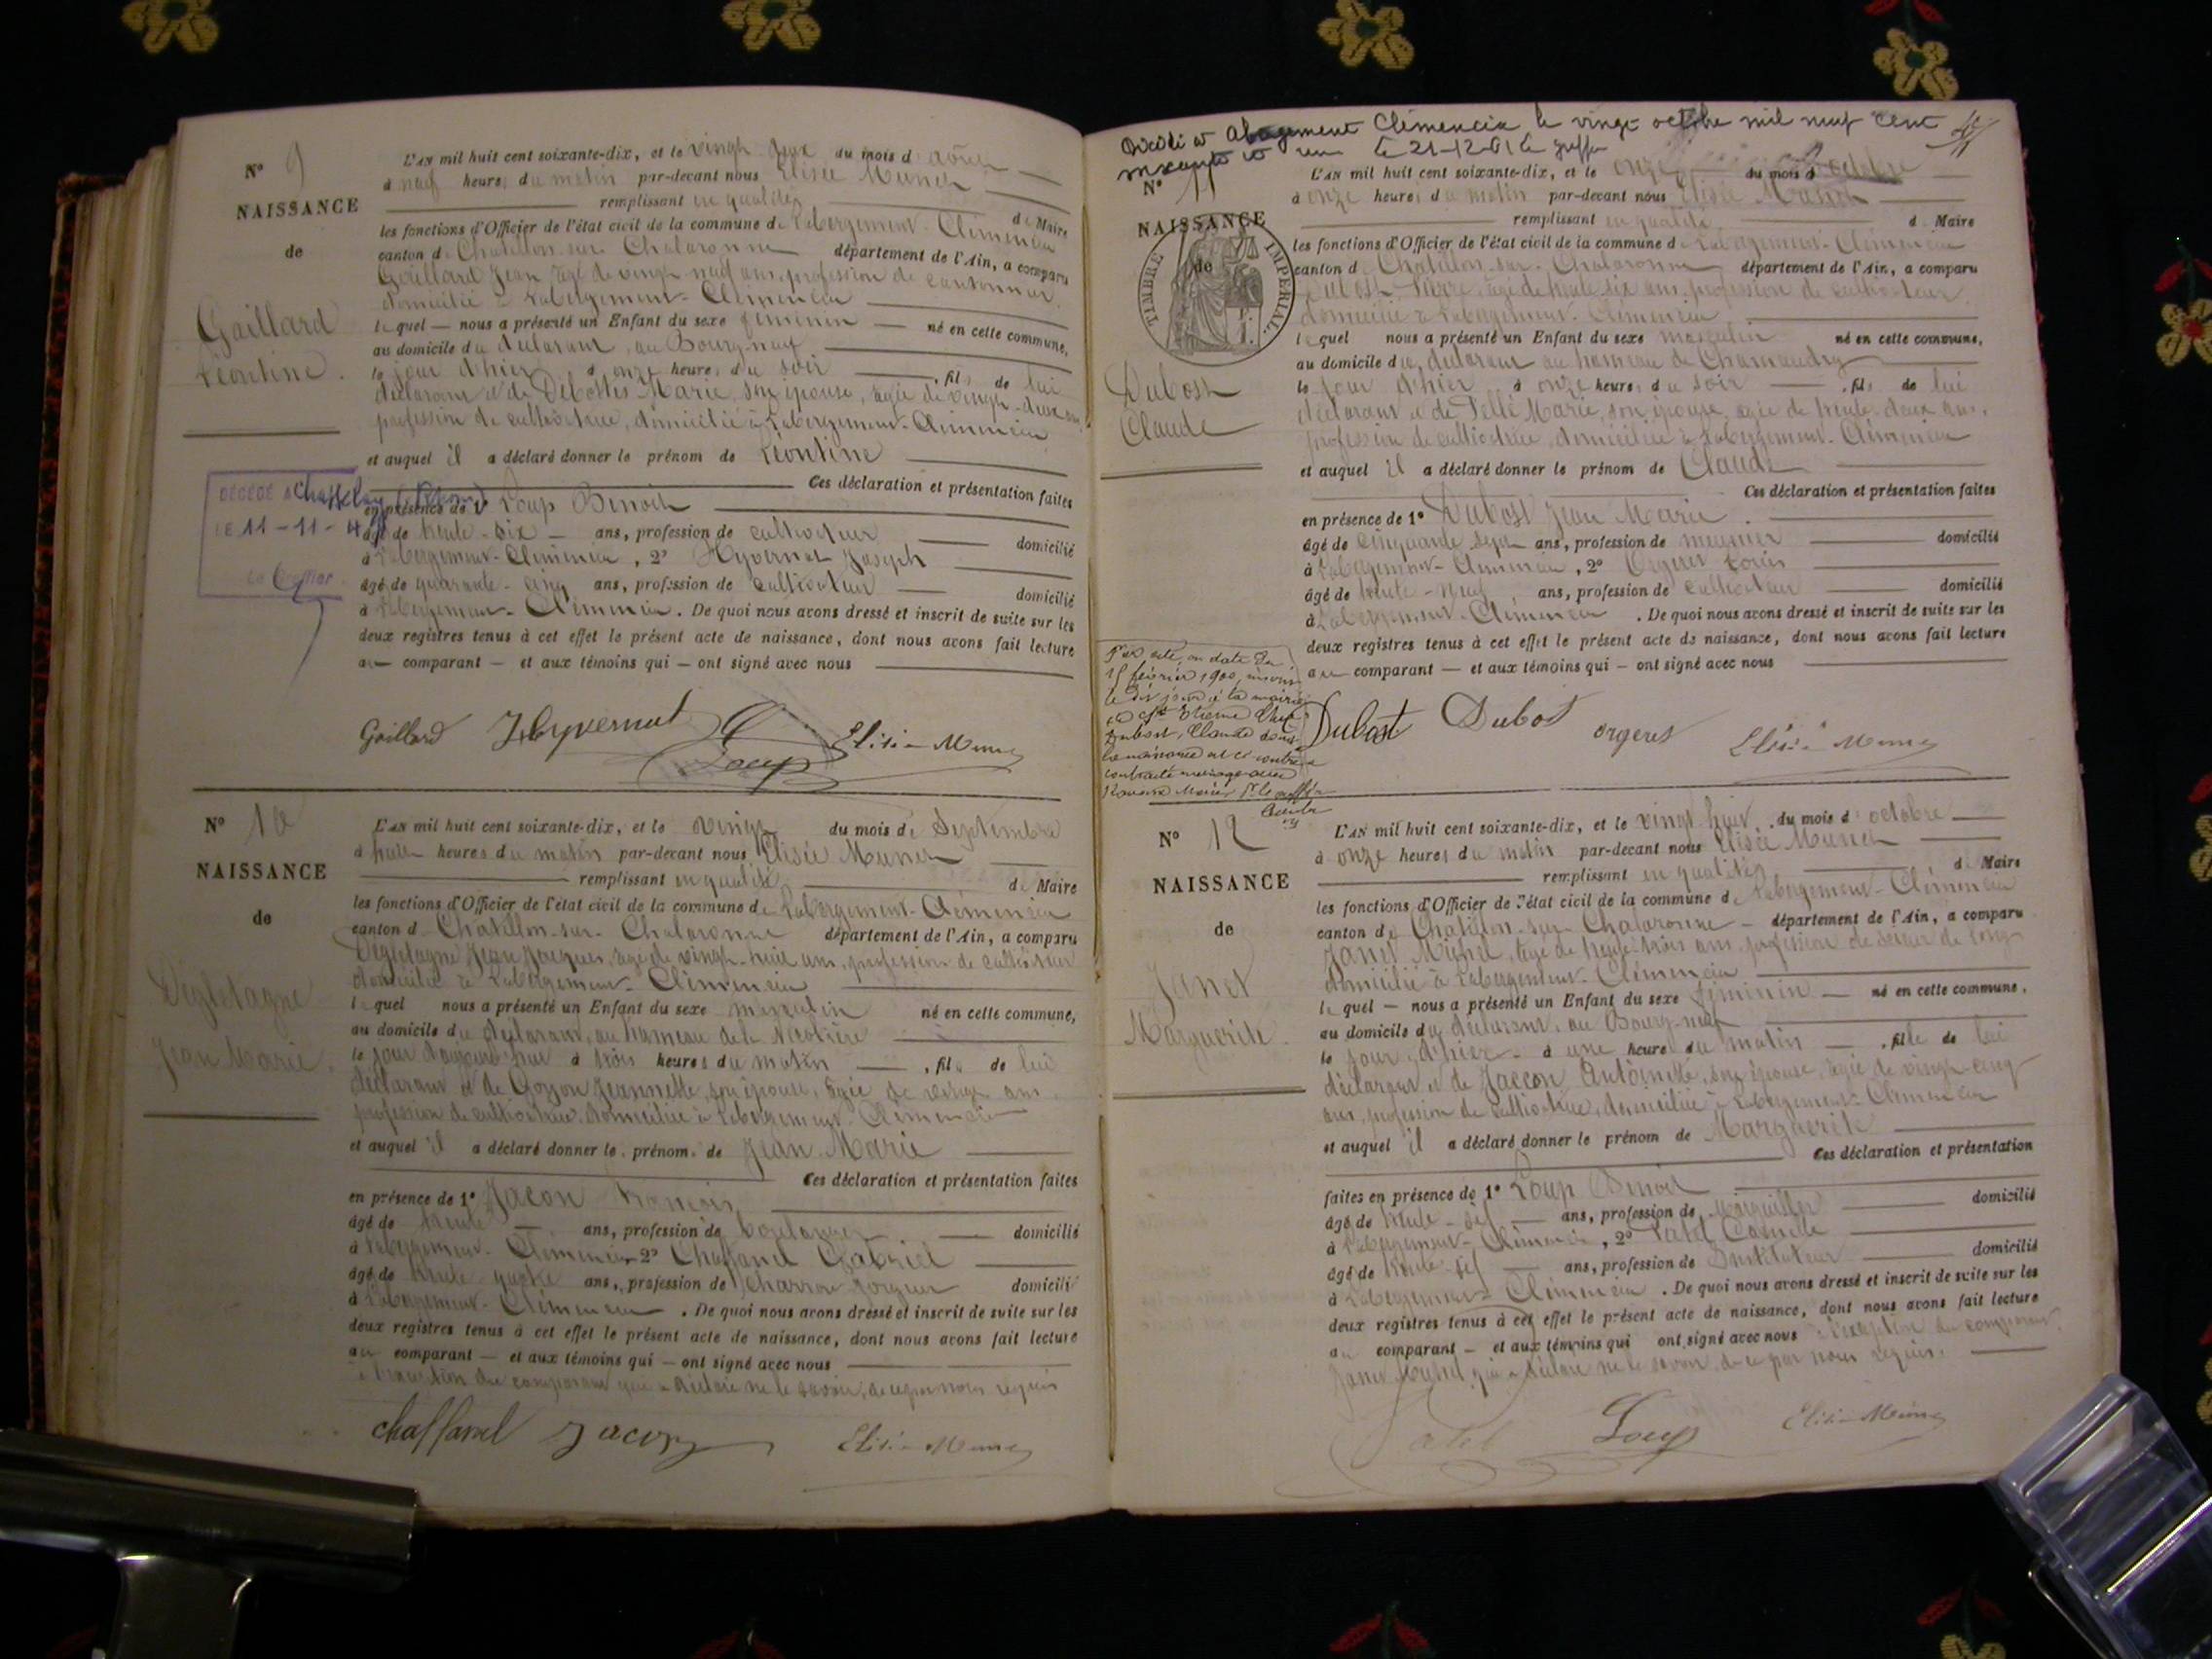 N° 9
NAISSANCE
de
Gaillard
Léontine.
L'AN mil huit cent soixante-dix, et le vingt deux du mois d'août
à neuf heures du matin par-devant nous Elisée Munet
remplissant en qualité de Maire
les fonctions d'Officier de l'état civil de la commune de Labergement-Clémencia
canton de Chatillon-sur-Chalaronne département de l'Ain, a comparu
Gaillard Jean, âgé de vingt neuf ans, profession de cantonnier,
domicilié à Labergement-Clémencia
lequel — nous a présenté un Enfant du sexe féminin — né en cette commune,
au domicile du déclarant, au Bourg-neuf
le jour d'hier à onze heures du soir , fille de lui
déclarant et de Debostes Marie, son épouse, âgée de vingt-deux ans
profession de cultivatrice, domiciliée à Labergement-Clémencia
et auquel il a déclaré donner le prénom de Léontine
Ces déclaration et présentation faites
en présence de 1° Loup Benoit
âgé de trente-six ans, profession de cultivateur domicilié
à Labergement-Clémencia, 2° Hyvernat Joseph
âgé de quarante-cinq ans, profession de cultivateur domicilié
à Labergement-Clémencia. De quoi nous avons dressé et inscrit de suite sur les
deux registres tenus à cet effet le présent acte de naissance, dont nous avons fait lecture
au comparant — et aux témoins qui — ont signé avec nous
DÉCÉDÉ à Chasselay (Rhône)
LE 11-11-4
Le Greffier
Gaillard Hyvernat Loup Elisée Munet
N° 10
NAISSANCE
de
Degletagne
Jean Marie.
L'AN mil huit cent soixante-dix, et le vingt du mois de Septembre
à huit heures du matin par-devant nous Elisée Munet
remplissant en qualité de Maire
les fonctions d'Officier de l'état civil de la commune de Labergement-Clémencia
canton de Chatillon-sur-Chalaronne département de l'Ain, a comparu
Degletagne Jean Jacques, âgé de vingt-huit ans, profession de cultivateur
domicilié à Labergement-Clémencia
lequel nous a présenté un Enfant du sexe masculin né en cette commune,
au domicile du déclarant, au hameau de la Nicotière
le jour d'aujourd'hui à trois heures du matin , fils de lui
déclarant et de Goyon Jeannette, son épouse, âgée de vingt ans,
profession de cultivatrice, domiciliée à Labergement-Clémencia
et auquel il a déclaré donner le prénom de Jean Marie
Ces déclaration et présentation faites
en présence de 1° Jacon François
âgé de trente ans, profession de boulanger domicilié
à Labergement-Clémencia, 2° Chaffanel Gabriel
âgé de trente-quatre ans, profession de charron forgeur domicilié
à Labergement-Clémencia. De quoi nous avons dressé et inscrit de suite sur les
deux registres tenus à cet effet le présent acte de naissance, dont nous avons fait lecture
au comparant — et aux témoins qui — ont signé avec nous
à l'exception du comparant qui a déclaré ne le savoir, de ce par nous requis
Chaffanel Jacon Elisée Munet
Décédé à Abergement Clémencia le vingt octobre mil neuf cent
soixante et un le 21-12-61 le greffier
N° 11
NAISSANCE
de
TIMBRE IMPERIAL.
Dubost
Claude
L'AN mil huit cent soixante-dix, et le onze du mois d'octobre
à onze heures du matin par-devant nous Elisée Munet
remplissant en qualité de Maire
les fonctions d'Officier de l'état civil de la commune de Labergement-Clémencia
canton de Chatillon-sur-Chalaronne département de l'Ain, a comparu
Dubost Pierre, âgé de trente-six ans, profession de cultivateur,
domicilié à Labergement-Clémencia
lequel nous a présenté un Enfant du sexe masculin né en cette commune,
au domicile du déclarant au hameau de Chamandry
le jour d'hier à onze heures du soir , fils de lui
déclarant et de Pelle Marie, son épouse, âgée de trente-deux ans,
profession de cultivatrice, domiciliée à Labergement-Clémencia
et auquel il a déclaré donner le prénom de Claude
Ces déclaration et présentation faites
en présence de 1° Dubost Jean Marie
âgé de cinquante sept ans, profession de meunier domicilié
à Labergement-Clémencia, 2° Orgeret Louis
âgé de trente-neuf ans, profession de cultivateur domicilié
à Labergement-Clémencia. De quoi nous avons dressé et inscrit de suite sur les
deux registres tenus à cet effet le présent acte de naissance, dont nous avons fait lecture
au comparant — et aux témoins qui — ont signé avec nous
Par acte, en date du
15 février 1900, inscrit
le dit jour à la mairie
de St Etienne
Dubost, Claude dont
la naissance est ci-contre a
contracté mariage avec
Marie P. le greffier
Dubost Dubost Orgeret Elisée Munet
N° 12
NAISSANCE
de
Janet
Marguerite.
L'AN mil huit cent soixante-dix, et le vingt-huit du mois d'octobre
à onze heures du matin par-devant nous Elisée Munet
remplissant en qualité de Maire
les fonctions d'Officier de l'état civil de la commune de Labergement-Clémencia
canton de Chatillon-sur-Chalaronne département de l'Ain, a comparu
Janet Michel, âgé de trente-trois ans, profession de scieur de long
domicilié à Labergement-Clémencia
lequel — nous a présenté un Enfant du sexe féminin — né en cette commune,
au domicile du déclarant, au Bourg-neuf
le jour d'hier à une heure du matin , fille de lui
déclarant et de Jaccon Antoinette, son épouse, âgée de vingt-cinq
ans, profession de cultivatrice, domiciliée à Labergement-Clémencia
et auquel il a déclaré donner le prénom de Marguerite
Ces déclaration et présentation
faites en présence de 1° Loup Benoit
âgé de trente-six ans, profession de Marguiller domicilié
à Labergement-Clémencia, 2° Patel Camille
âgé de trente-six ans, profession de Instituteur domicilié
à Labergement-Clémencia. De quoi nous avons dressé et inscrit de suite sur les
deux registres tenus à cet effet le présent acte de naissance, dont nous avons fait lecture
au comparant — et aux témoins qui ont signé avec nous à l'exception du comparant
Janet Michel qui a déclaré ne le savoir, de ce par nous requis.
Patel Loup Elisée Munet